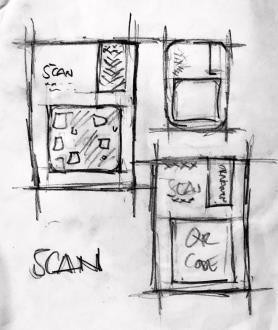 SCAN
SCAN
QR
CODE
SCAN